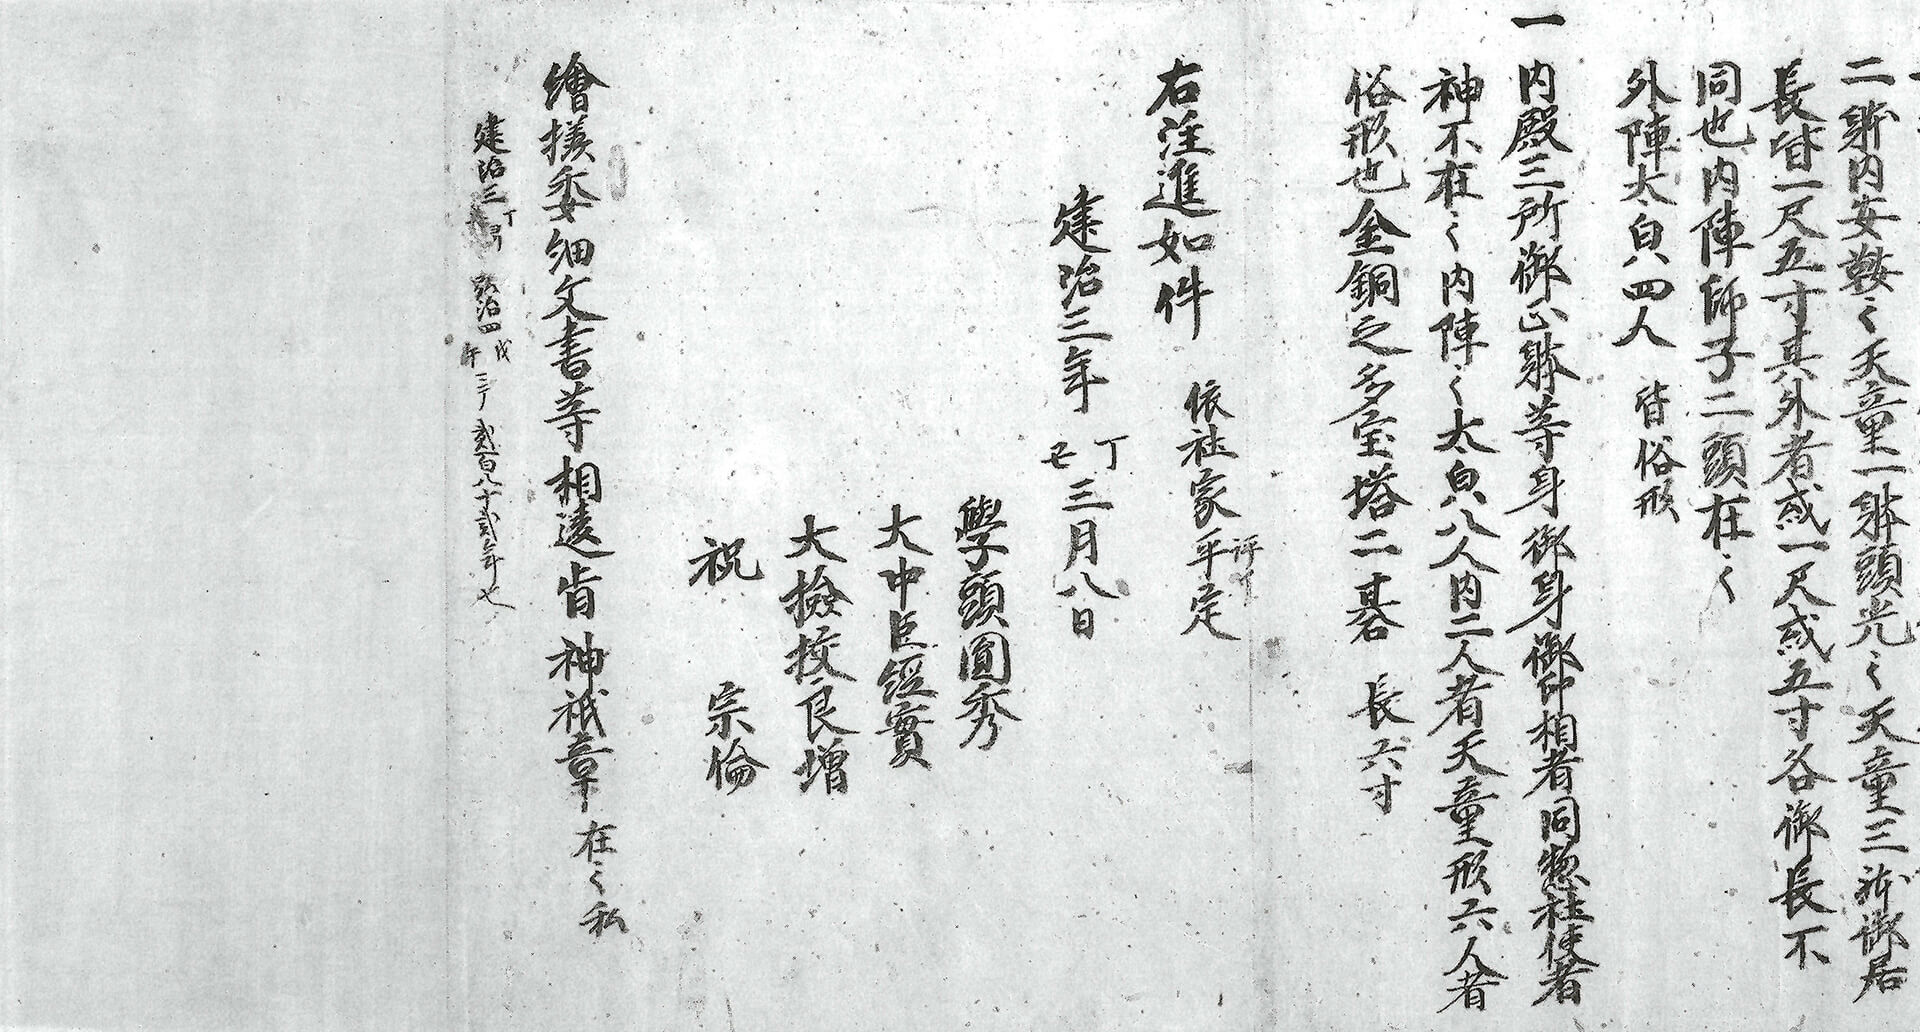 二躰内安鞍々天童一躰頭光々天童三躰御居
長皆一尺五寸其外者或一尺或五寸各御長不
同也内陣師子二頭在々
外陣大臣四人 皆俗形
一
内殿三所御正躰等身御身御仰相者同惣社使者
神不在々内陣々大臣八人内二人者天童形六人者
俗形也金銅之多宝塔二基 長六寸
右注進如件 依社家平定
評
建治三年丁丑三月八日
學頭圓秀
大中臣經實
大撿挍良増
祝 宗倫
繪様委細文書等相違皆神祇章在々私
建治三丁丑 弘治四戊午三月 貳百八十貳年也